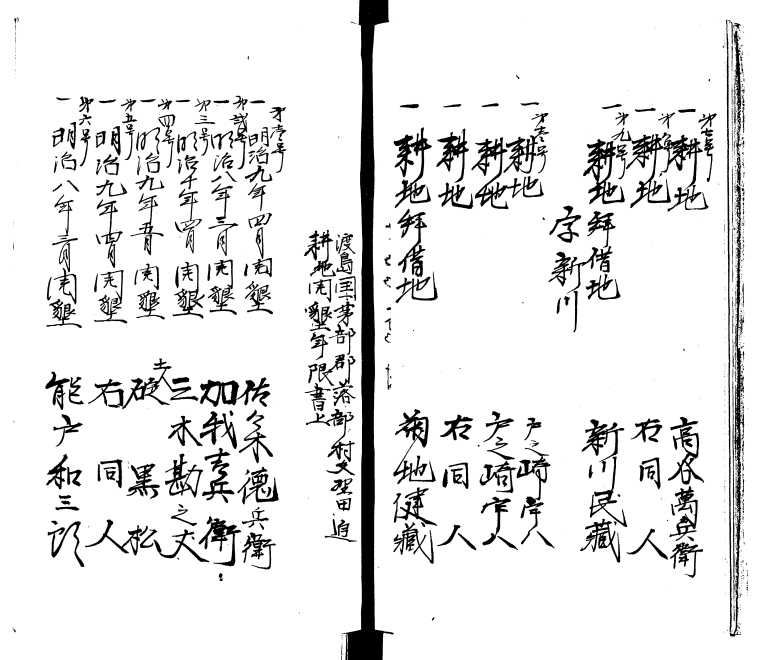 第七号
一 耕地 高谷萬兵衛
一 耕地 右同人
第九号
一 耕地拜借地 新川民藏
字新川
第六号
一 耕地 戸之崎宇八
一 耕地 戸之崎宇八
一 耕地 右同人
一 耕地拜借地 菊地健藏
渡島国茅部郡落部村
耕地開墾年限書上
第壱号
一 明治九年四月開墾 佐々木德兵衛
第弐号
一 明治八年三月開墾 加我吉兵衛
第三号
一 明治十年四月開墾 三木勘之丈
第四号
一 明治九年五月開墾 土人 碇黒松
第五号
一 明治九年四月開墾 右同人
第六号
一 明治八年三月開墾 能戸和三郎